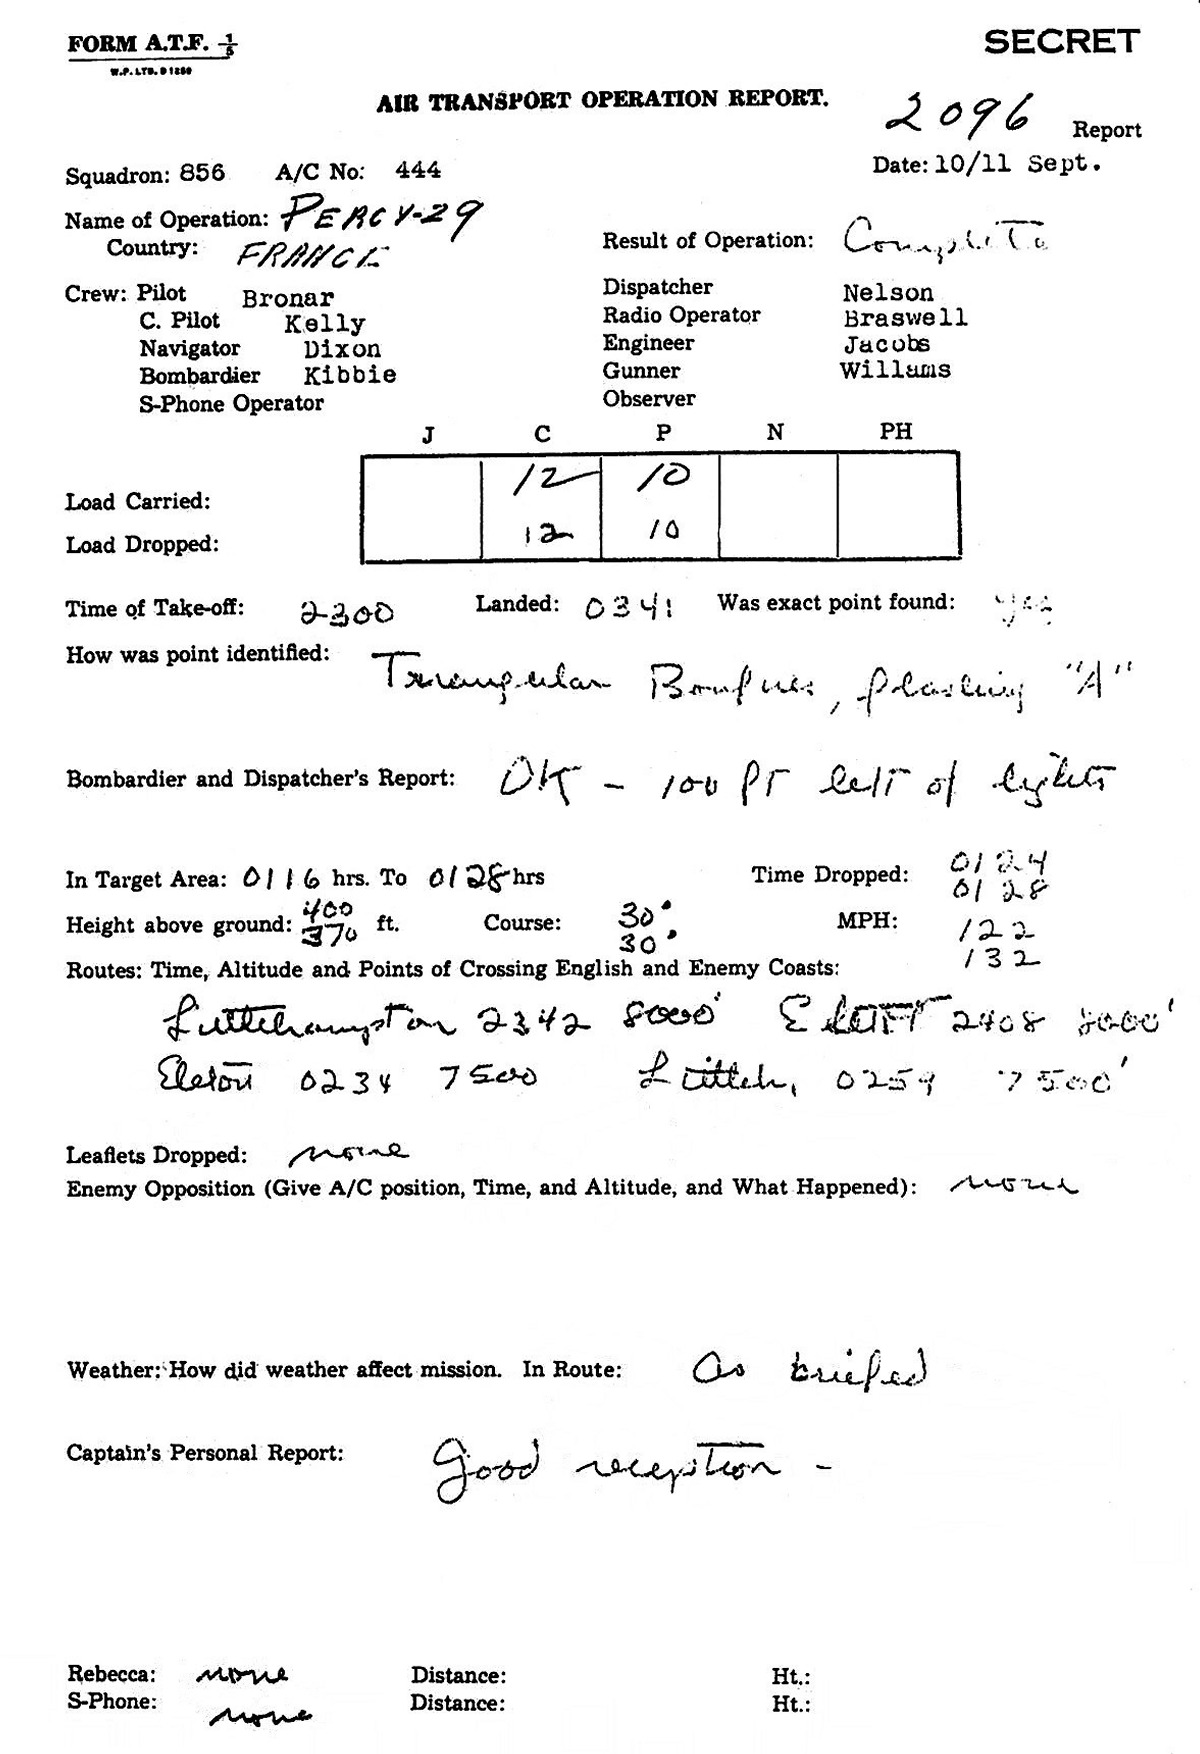 FORM A.T.F. 1/5
SECRET
W.P. LTD. D1280
AIR TRANSPORT OPERATION REPORT.
2096 Report
Squadron: 856 A/C No: 444 Date: 10/11 Sept.
Name of Operation: PERCY-29
Country: FRANCE
Result of Operation: Complete
Crew: Pilot Bronar Dispatcher Nelson
C. Pilot Kelly Radio Operator Braswell
Navigator Dixon Engineer Jacobs
Bombardier Kibbie Gunner Willams
S-Phone Operator Observer
J C P N PH
Load Carried: 12 10
Load Dropped: 12 10
Time of Take-off: 2300 Landed: 0341 Was exact point found: yes
How was point identified: Triangular Bonfires, flashing "A"
Bombardier and Dispatcher's Report: OK - 100 ft left of lights
In Target Area: 0116 hrs. To 0128 hrs Time Dropped: 0124
0128
Height above ground: 400 ft. Course: 30° MPH: 122
370 30° 132
Routes: Time, Altitude and Points of Crossing English and Enemy Coasts:
Littlehampton 2342 8000' 2408 8000'
0234 7500 Littleh, 0259 7500'
Leaflets Dropped: none
Enemy Opposition (Give A/C position, Time, and Altitude, and What Happened): none
Weather: How did weather affect mission. In Route: As briefed
Captain's Personal Report: Good reception -
Rebecca: none Distance: Ht.:
S-Phone: none Distance: Ht.: